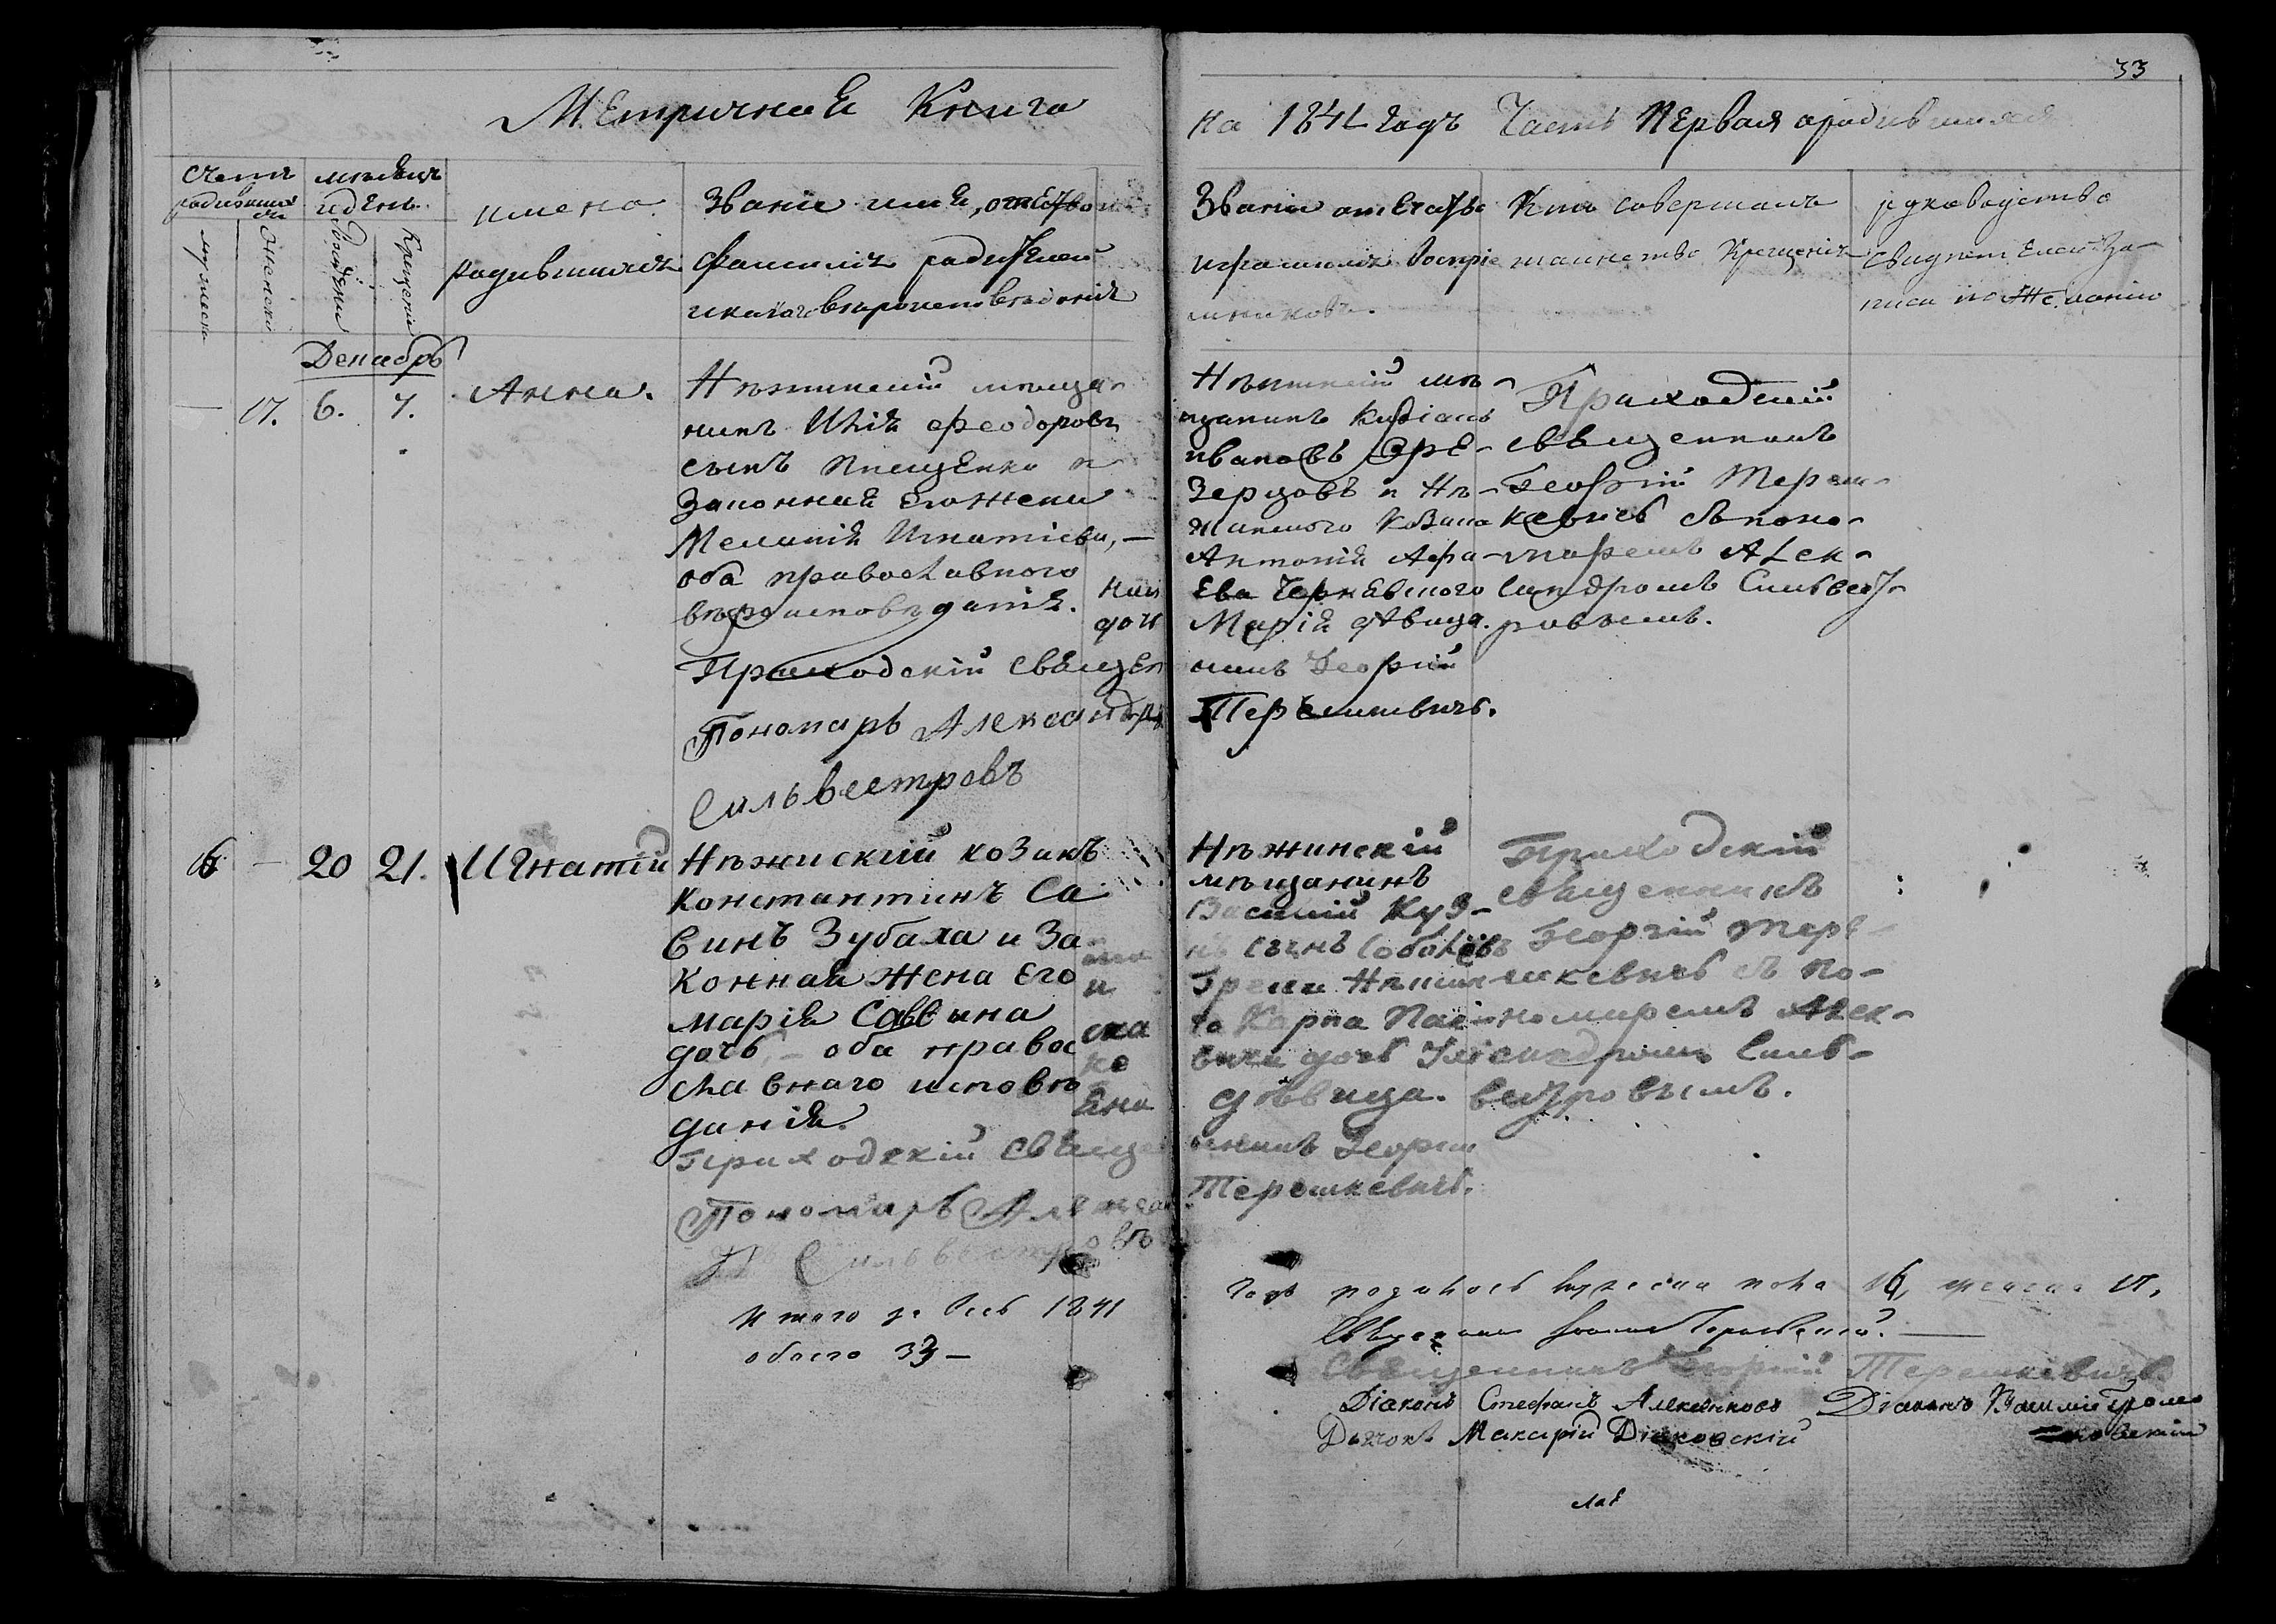 33
Метричная Книга
на 1841 годъ Часть Первая о родившихся
Счетъ родившихся
мужеска
женска
месяцъ и день
рожденія
крещенія
имена
родившихся
Званіе имя, отечество и
фамилія родителей
и какого вероисповеданія
Званіе отечество
и фамилія воспріе-
мниковъ.
Кто совершалъ
таинство Крещенія
руководство
свидетелей за-
писи по желанію
Декабрь
— 17. 6. 7. Анна.
Нѣжинскій мѣща-
нинъ Илія Феодоровъ
сынъ Пищенко и
Законная его жена
Меланія Игнатіева, —
оба православного
вѣроисповѣданія.
Приходскій Священ
Пономарь Александръ
Сильвестровъ
Нѣжинскій мѣ-
щанинъ
Ивановъ
и Нѣ-
жинского козака
Антонія
Марія дѣвица.
никъ Георгій
Терешкевичъ.
Приходскій
священникъ
Георгій Тереш-
кевичъ съ поно-
маремъ Алек-
сандромъ Сильвест-
ровымъ.
16 — 20 21. Игнатій
Нѣжиский козакъ
Константинъ Са
винъ Зубаха и За
конная жена Его
Марія Саввина
дочь, — оба правос
лавнаго исповѣ
данія.
Приходскій Священ
Пономарь Алексан
Сильвестровъ
Нѣжинскій
мѣщанинъ
Василій Куз-
сынъ Соболевъ
Карпа
дочь
дѣвица.
никъ Георгій
Терешкевичъ.
Приходскій
священникъ
Георгій Тере-
шкевичъ съ по-
номаремъ Алек-
сандромъ Силь-
вестровымъ.
Итого за весь 1841
обоего 33 —
годъ родилось мужеска пола 16, женска 17,
Священникъ Георгій Терешкевичъ
Діаконъ Стефанъ Діаконъ Василій
Дьячокъ Макарій Діаковскій